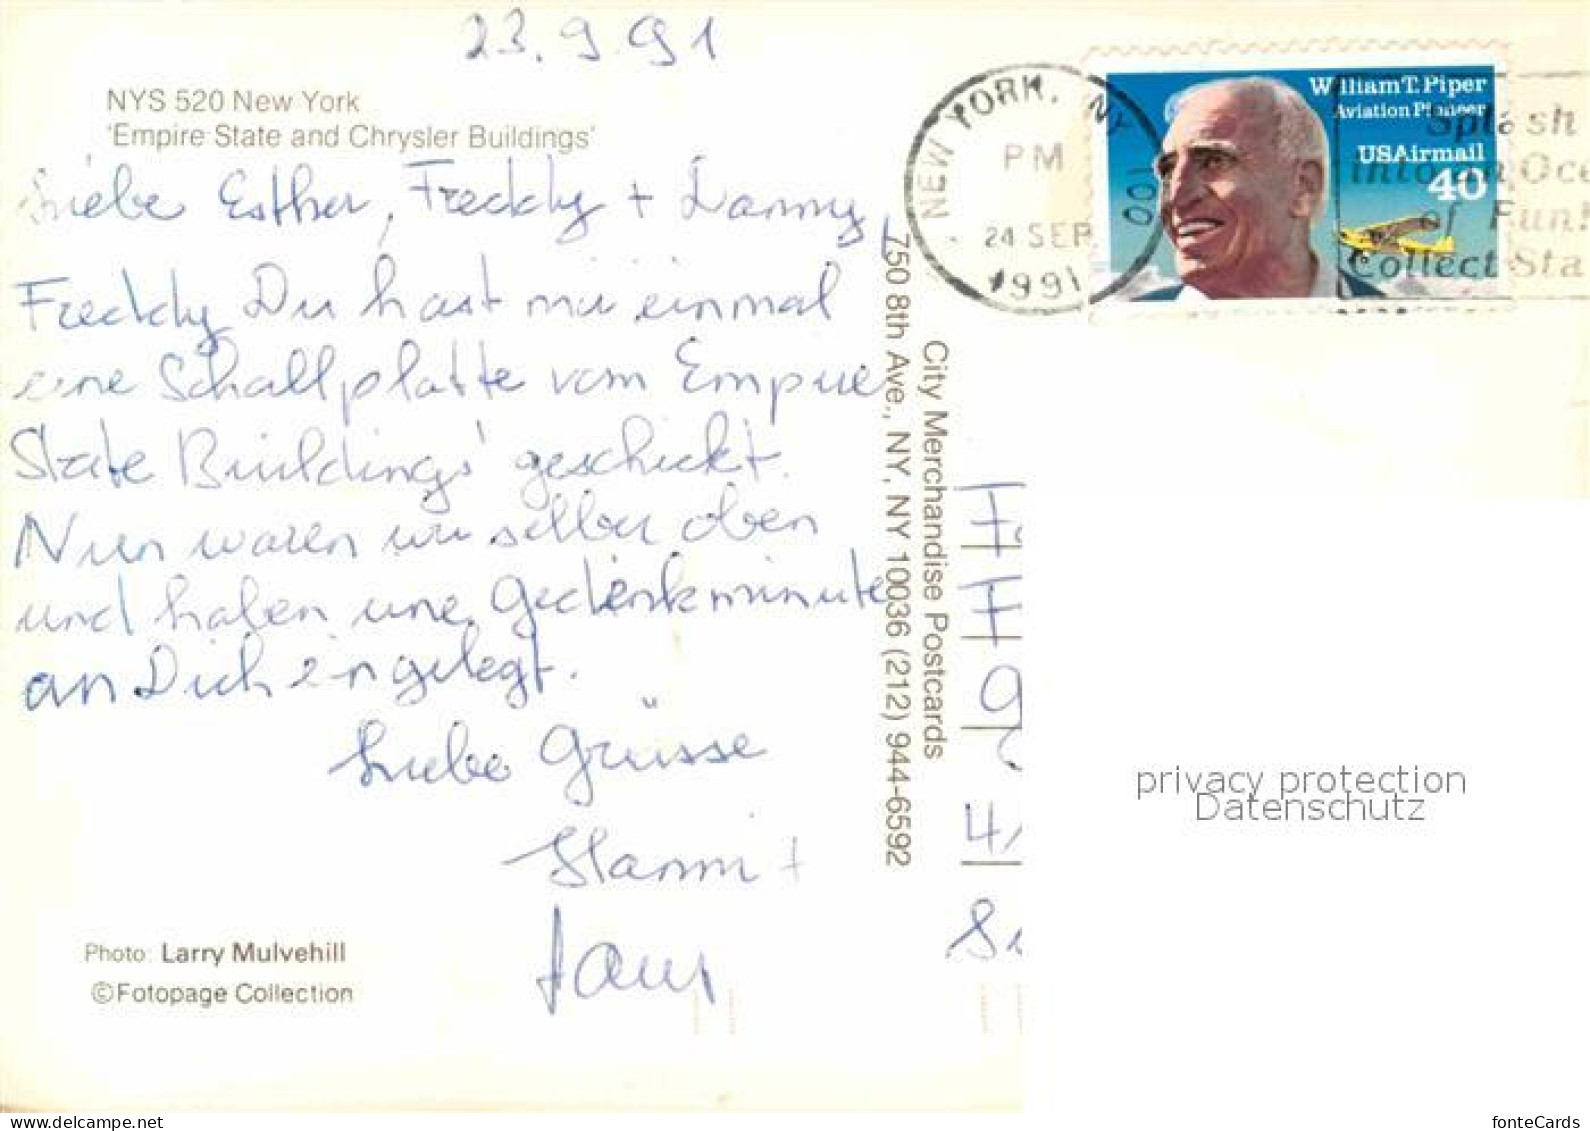 23.9.91
NYS 520 New York
'Empire State and Chrysler Buildings'
Liebe Esther, Freddy + Danny,
Freddy Du hast mir einmal
eine Schallplatte vom Empire
State Buildings' geschickt.
Nun waren wir selber oben
und haben eine Gedenkminute
an Dich eingelegt.
Liebe Grüsse
Hanni +
Photo: Larry Mulvehill
©Fotopage Collection
City Merchandise Postcards
750 8th Ave., NY, NY 10036 (212) 944-6592
NEW YORK, NY 100
PM
24 SEP
1991
William T. Piper
Aviation Pioneer
USAirmail
40
Splash
into an Oce
of Fun!
Collect Sta
privacy protection
Datenschutz
delcampe.net
fonteCards